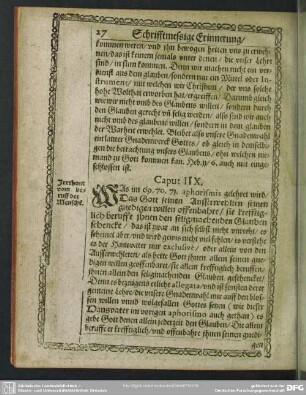 27 Schrifftmessige Erinnerung/
kommen weren/ vnd jhn bewogen hetten vns zu erweh-
nen/ das ist keinem jemals vnter denen/ die vnser Lehr
sind/ in sinn kommen. Denn wir machen nicht ein ver-
dienst aus dem glauben/ sondern nur ein Mittel oder In-
strument/ mit welchem wir Christum/ der vns solche
hohe Wolthat erworben hat/ ergreiffen. Darumb gleich
wie wir nicht vmb des Glaubens willen/ sondern durch
den Glauben gerecht vñ selig werden/ also sind wir auch
nicht vmb des glaubens willen/ sondern in dem glauben
der Warheit erwehlet. Bleibet also vnsere Gnadenwahl
ein lauter Gnadenwerck Gottes/ ob gleich in demselbi-
gen die betrachtung vnsers Glaubens/ ohn welchen nie-
mand zu Gott kommen kan. Heb. 11/ 6. auch mit einge-
schlossen ist.
Caput IIX.
Irrthumb
vom be-
ruff der
Mensche.
WAs im 69. 70. 77. aphorismis gelehret wird/
Das Gott seinen Ausserwehlten seinen
gnedigen willen offenbahre/ sie krefftig-
lich beruffe/ jhnen den seligmachenden Glauben
schencke/ das ist zwar an sich selbst nicht vnrecht/ es
es der Hanwolter nur exclusivè/ oder allein von den
Ausserwehleten/ als hette Gott jhnen allein seinen gne-
digen willen geoffenbaret/ sie allein krefftiglich beruffen/
jhnen allein den seligmachenden Glauben geschencket/
meine Lehre/ die vnsere Gnadenwahl nur auff den blos-
sen willen vnnd wolgefallen Gottes setzen/ (wie dieser
gebe Gott denen allein jederzeit den Glauben/ Die allein
beruffe er krefftiglich/ vnd offenbahre jhnen seinen gne-